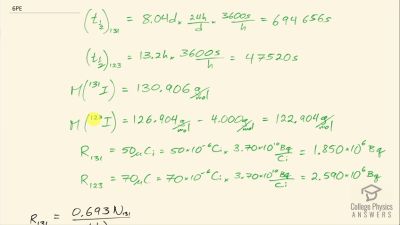 6PE
(t½)131 = 8.04d × 24h/d × 3600s/h = 694 656s
(t½)123 = 13.2h × 3600s/h = 47520s
M(¹³¹I) = 130.906 g/mol
M(¹²³I) = 126.904 g/mol - 4.000 g/mol = 122.904 g/mol
R131 = 50μCi = 50×10⁻⁶Ci × 3.70×10¹⁰ Bq/Ci = 1.850×10⁶ Bq
R123 = 70μC = 70×10⁻⁶Ci × 3.70×10¹⁰ Bq/Ci = 2.590×10⁶ Bq
R131 = 0.693 N131
College Physics
ANSWERS